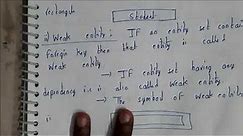 rectangle
Student
ii) Weak entity : If an entity set contain
foreign key then that entity is called
weak entity
→ If entity set having any
dependency is is also called weak entity
→ The symbol of weak entity
is